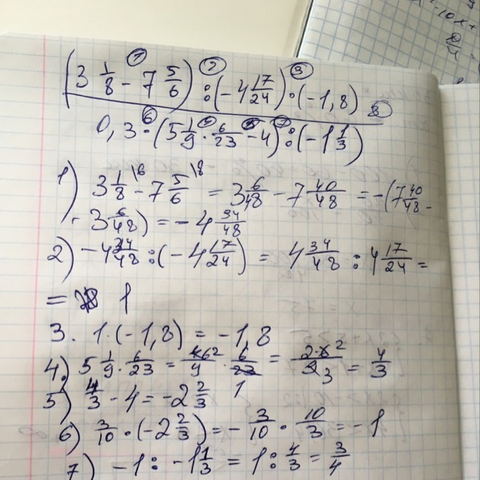 (3 1/8 - 7 5/6) : (-4 17/24) · (-1,8)
0,3 · (5 1/9 · 6/23 - 4) : (-1 1/3)
1) 3 1/8 - 7 5/6 = 3 6/48 - 7 40/48 = -(7 40/48 -
- 3 6/48) = -4 34/48
2) -4 34/48 : (-4 17/24) = 4 34/48 : 4 17/24 =
= 1
3. 1·(-1,8) = -1,8
4) 5 1/9 · 6/23 = 46 2/9 · 6/23 = 2·2/3 = 4/3
5) 4/3 - 4 = -2 2/3
6) 3/10 · (-2 2/3) = -3/10 · 10/3 = -1
7) -1 : -1 1/3 = 1 : 4/3 = 3/4